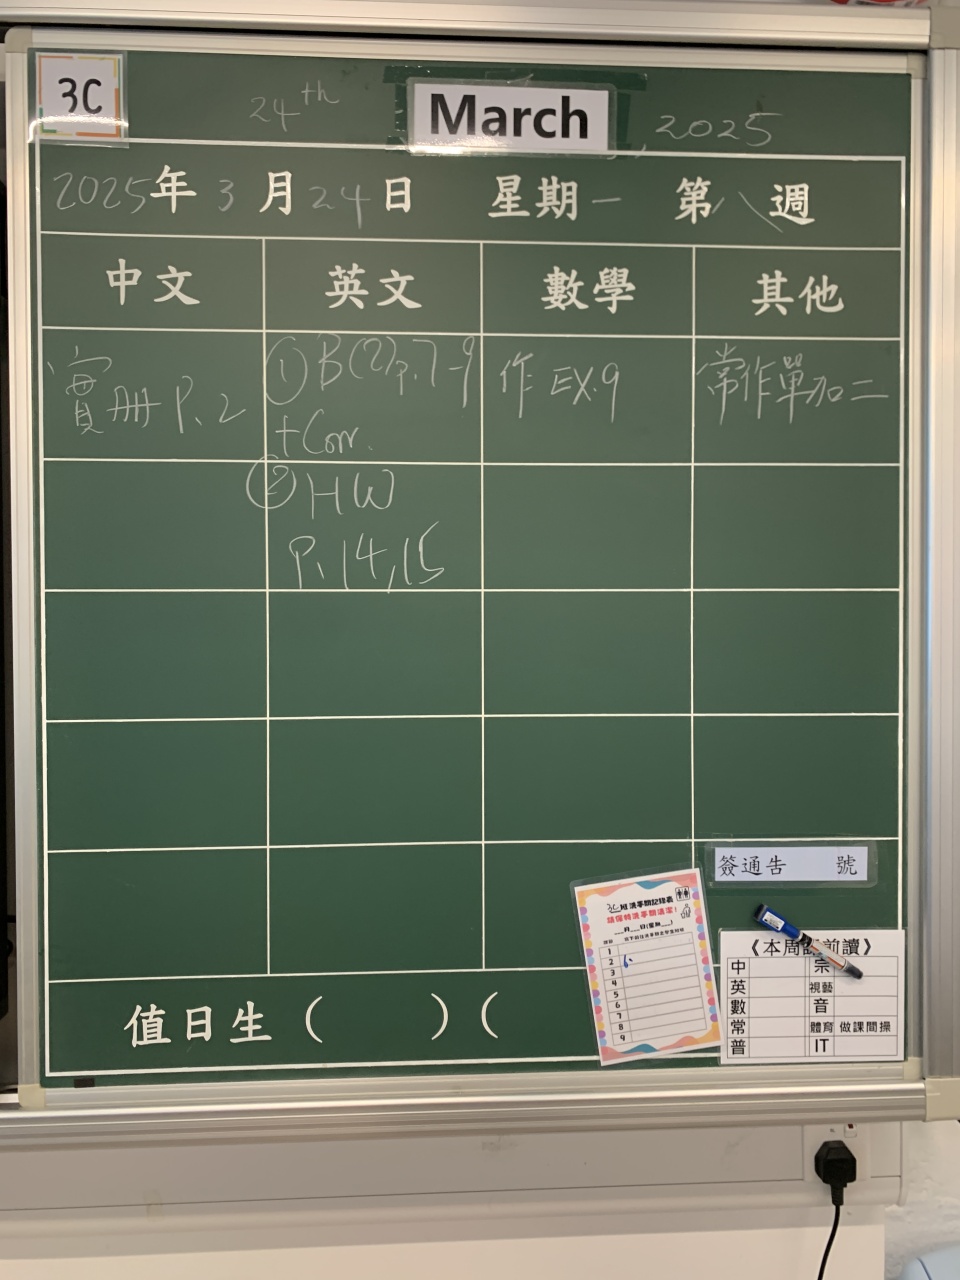 3C
24th March, 2025
2025年3月24日 星期一 第八週
中文 英文 數學 其他
實冊 P.2
① B(2)p.7-9
+Corr.
② HW
P.14,15
作 EX.9
常作單加二
簽通告 號
3C班洗手間記錄表
請保持洗手間清潔!
___月___日(星期___)
1
2
3
4
5
6
7
8
9
《本周課前讀》
中 宗
英 視藝
數 音
常 體育 做課間操
普 IT
值日生( )(